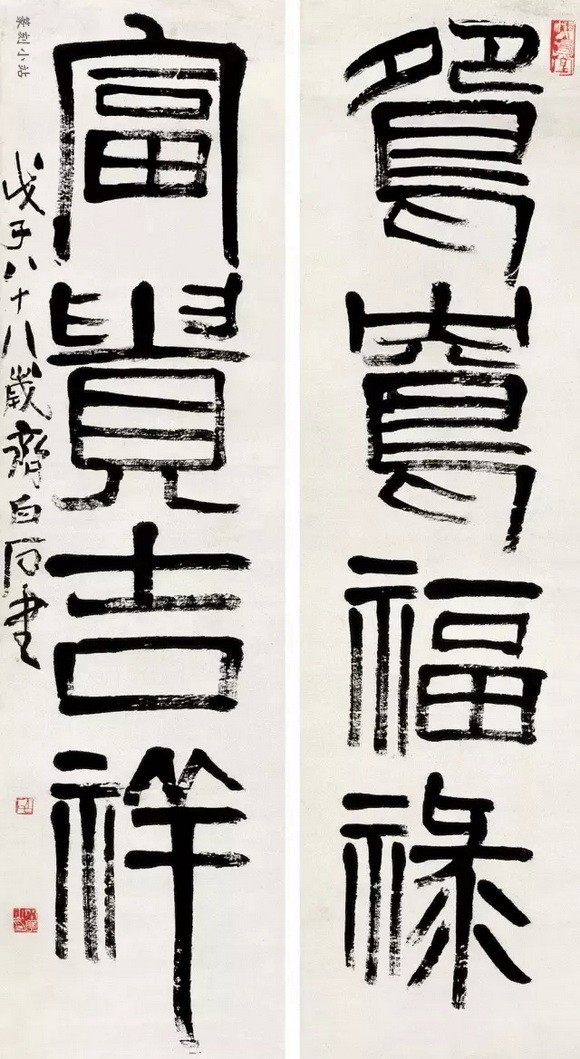 鴛鴦福祿
富貴吉祥
戊子八十八歲齊白石書
篆刻小站